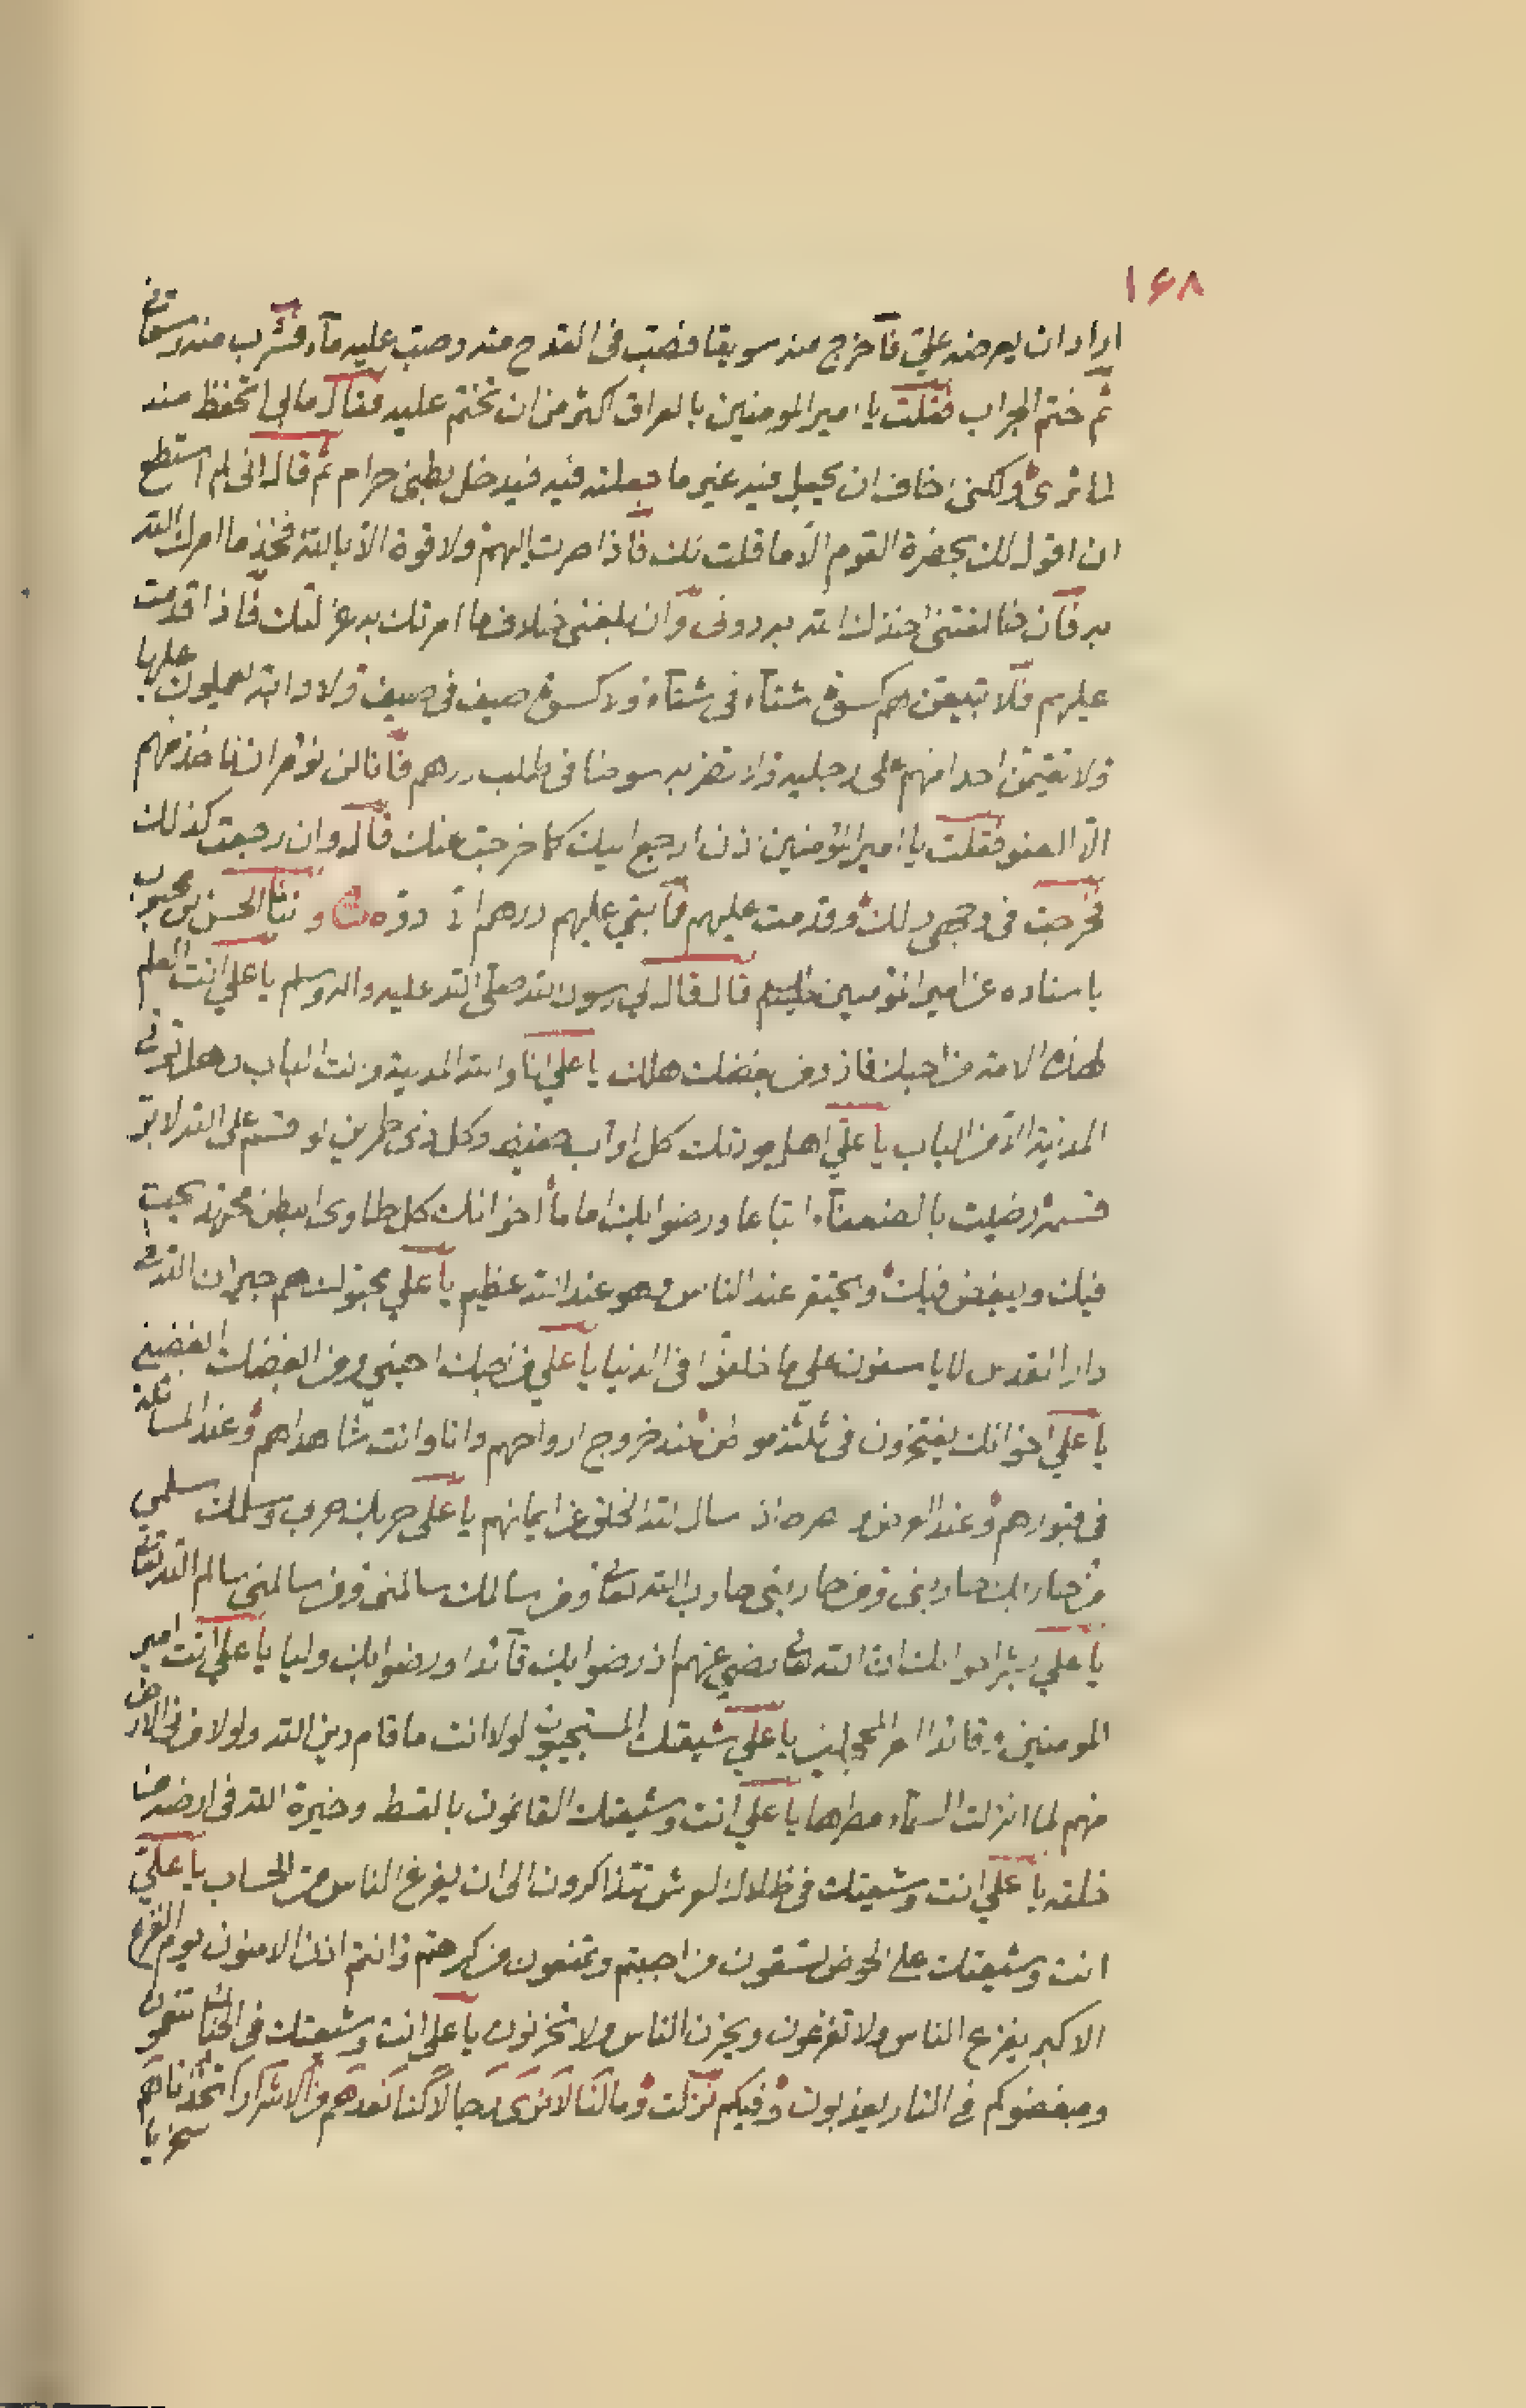 ١٦٨
اراد ان يعرضه عليّ فاخرج منه سويقا فصب فى القدح منه وصب عليه مآء فشرب منه وسقانى
ثم ختم الجراب فقلت يا امير المومنين بالعراق اكثر من ان تختم عليه فقال مالى احفظ منه
لما ترى ولكنى اخاف ان يجعل فيه غير ما جعلته فيه فيدخل بطنى حرام ثم قال انى لم استطع
ان اقول لك بحضرة القوم الا ما قلت لك فاذا صرت اليهم ولا قوة الا بالله فخذ ما امرك الله
به فان خالفتنى اخذك الله به دونى وان بلغنى خلاف ما امرتك به عزلتك فاذا قدمت
عليهم فلا تبيعن لهم كسوة شتآء فى شتآء ولا كسوة صيف فى صيف ولا دابة يعملون عليها
ولا تقيمن احدا منهم على رجليه ولا تضربه سوطا فى طلب درهم فانا لن نؤمر ان ناخذ منهم
الا العفو فقلت يا امير المؤمنين اذن ارجع اليك كما خرجت عنك قال وان رجعت كذلك
فخرجت فى وجهى ذلك وقدمت عليهم فما بقي عليهم درهم الا ودوه وثنا الحسن بن محبوب
باسناده عن امير المؤمنين قال قال لى رسول الله صلى الله عليه واله وسلم يا علي انت العلم
لهذه الامة من احبك فاز ومن بغضك هلك يا علي انا والله المدينة وانت الباب وهل تؤتى
المدينة الا من الباب يا علي اهل مودتك كل اواب حفيظ وكل ذى طمرين لو قسم على الله لابر
قسمه رضيت بالضعفآء اتباعا ورضوا بك اماما اخوانك كل طاوى البطن مجتهد يحب
فيك ويبغض فيك ويحتقر عند الناس وهو عند الله عظيم يا علي محبوك هم جيران الله فى
دار القدس لا ياسفون على ما خلفوا فى الدنيا يا علي من احبك احبنى ومن ابغضك ابغضنى
يا علي اخوانك يفتخرون فى ثلثة مواطن عند خروج ارواحهم وانا وانت شاهداهم وعند المسائلة
فى قبورهم وعند العرض اذ سال الله الخلق عن ايمانهم يا علي حربك حرب وسلمك سلمى
من حاربك حاربنى ومن حاربنى حارب الله تعالى ومن سالمك سالمنى ومن سالمنى سالم الله تعالى
يا علي بشر اخوانك ان الله تعالى رضي عنهم اذ رضوا بك قآئدا ورضوا بك وليا يا علي انت امير
المومنين وقائد الغر المحجلين يا علي شيعتك المستجيبون لولا انت ما قام دين الله ولولا من فى الارض
منهم لما انزلت السمآء مطرها يا علي انت وشيعتك القائمون بالقسط وخيرة الله فى ارضه من
خلقه يا علي انت وشيعتك فى ظلال العرش تتذاكرون الى ان يفرغ الناس من الحساب يا علي
انت وشيعتك على الحوض تسقون من احببتم وتمنعون من كرهتم وانتم الامنون يوم الفزع
الاكبر يفزع الناس ولا تفزعون ويحزن الناس ولا تحزنون يا علي انت وشيعتك فى الجنان تتنعمون
ومبغضوكم فى النار يعذبون وفيكم نزلت وما لنا لا نرى رجالا كنا نعدهم من الاشرار اتخذناهم
سخريا